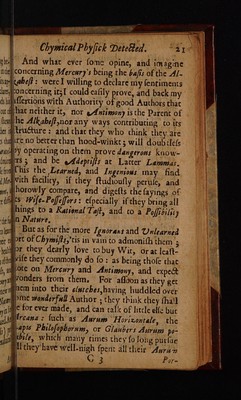 Chymical Physick Detected. 21
And what ever some opine, and imagine
concerning Mercury's being the basis of the Al-
kahest: were I willing to declare my sentiments
concerning it; I could easily prove, and back my
assertions with Authority of good Authors that
that neither it, nor Antimony is the Parent of
the Alkahest, nor any ways contributing to its
structure: and that they who think they are
are no better than hood-winkt; will doubtless
by operating on them prove dangerous know-
ers; and be Adeptists at Latter Lammas.
This the Learned, and Ingenious may find
with facility, if they studiously peruse, and
thorowly compare, and digests the sayings of
its Wise-Possessors: especially if they bring all
things to a Rational Test, and to a Possibility
in Nature.
But as for the more Ignorant and Unlearned
sort of Chymists, 'tis in vain to admonish them;
or they dearly love to buy Wit, or at least-
wise they commonly do so: as being those that
dote on Mercury and Antimony, and expect
wonders from them. For assoon as they get
them into their clutches, having huddled over
some wonderfull Author; they think they shall
be for ever made, and can talk of little else but
Arcana: such as Aurum Horizontale, the
Lapis Philosophorum, or Glaubers Aurum po-
tabile, which many times they so long pursue
till they have well-nigh spent all their Aurum
C 3 Po-